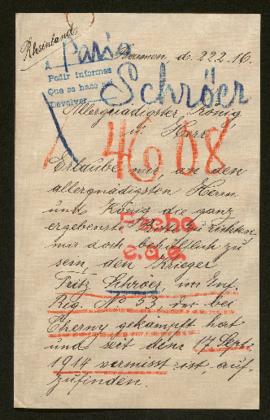 Rheinland
A París
Pedir informes
Que se hace
Devolver
Schröer
d. 22.2.16.
Allergnädigster König
u. Herr
4608
Erlaube mir, an den
allergnädigsten Herrn
und König die ganz
ergebenste Bitte zu richten
mir doch behilflich zu
sein den Krieger
Fritz Schröer, im Inf.
Reg. No 53 der bei
gekämpft hat
und seit dem 17 Sept.
1914 vermisst ist, auf-
zufinden.
Fecho